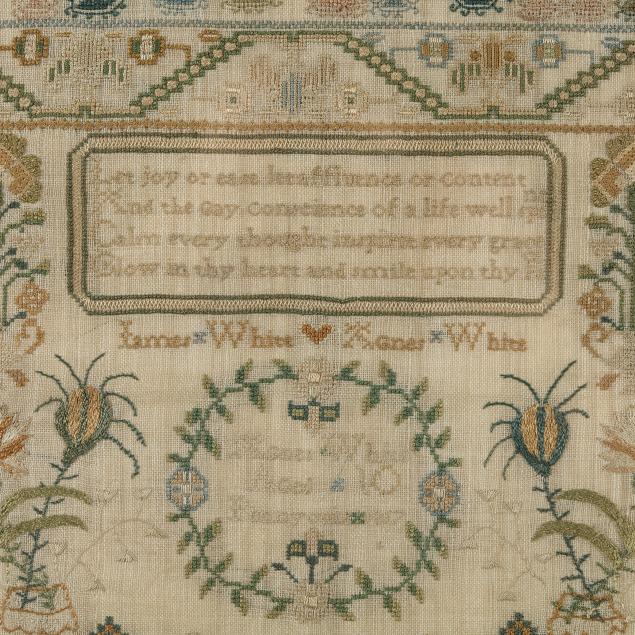 Let joy or ease let affluence or content
And the Gay Conscience of a life well
Calm every thought inspirit every grace
Glow in thy heart and smile upon thy
Iames White Agnes White
Agnes White
Aged 10